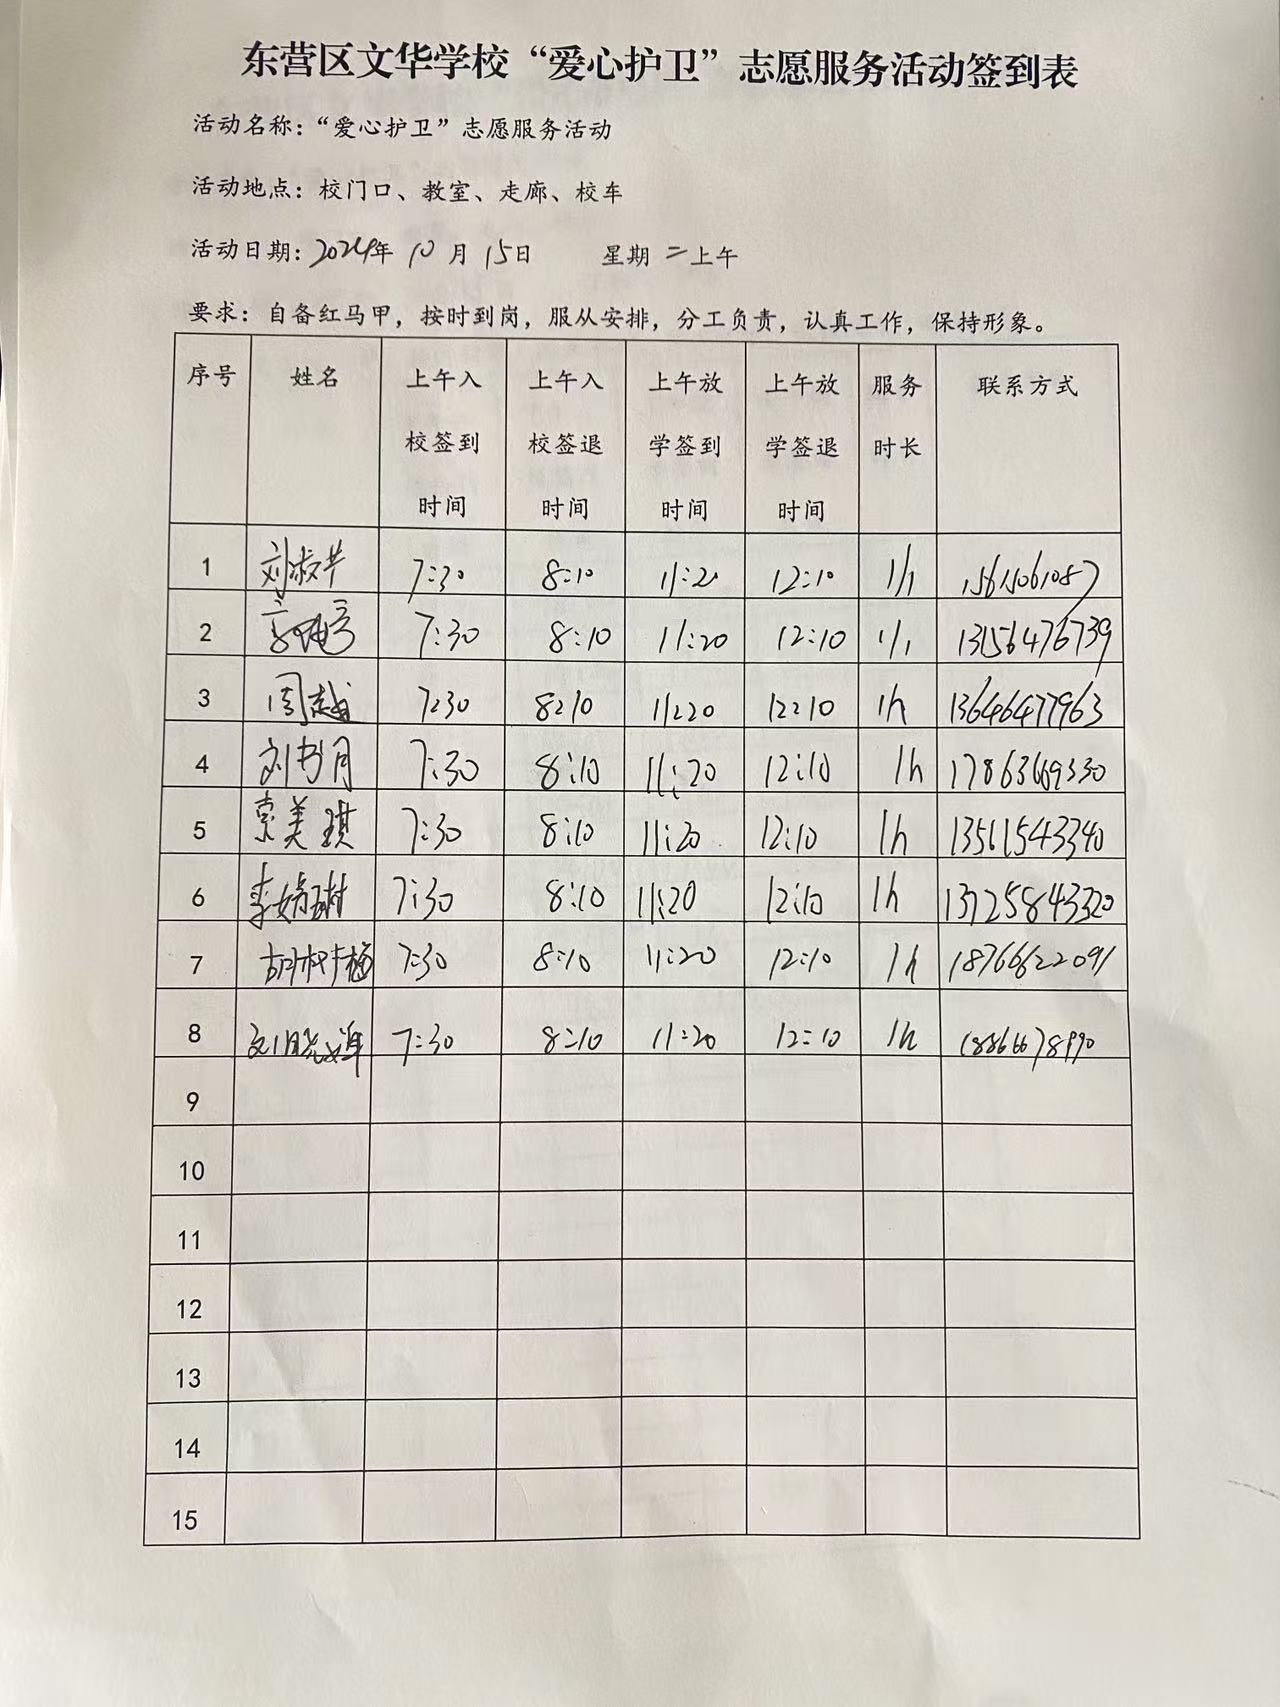 东营区文华学校“爱心护卫”志愿服务活动签到表
活动名称：“爱心护卫”志愿服务活动
活动地点：校门口、教室、走廊、校车
活动日期：2024年 10 月 15日 星期 二 上午
要求：自备红马甲，按时到岗，服从安排，分工负责，认真工作，保持形象。
序号 姓名 上午入校签到时间 上午入校签退时间 上午放学签到时间 上午放学签退时间 服务时长 联系方式
1 刘淑芹 7:30 8:10 11:20 12:10 1h 15615061087
2 7:30 8:10 11:20 12:10 1h 13156476739
3 周越 7:30 8:10 11:20 12:10 1h 13646477963
4 刘书月 7:30 8:10 11:20 12:10 1h 17863669330
5 索美琪 7:30 8:10 11:20 12:10 1h 13561543340
6 李娟琳 7:30 8:10 11:20 12:10 1h 13725843320
7 胡树梅 7:30 8:10 11:20 12:10 1h 18766622091
8 刘晓 7:30 8:10 11:20 12:10 1h 18866678990
9
10
11
12
13
14
15